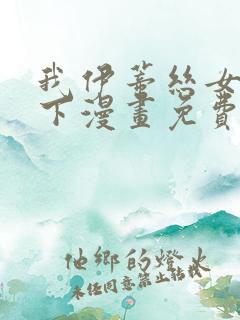 我伊蒂丝女
下漫畫免費
他鄉的燈火
未经同意禁止转载